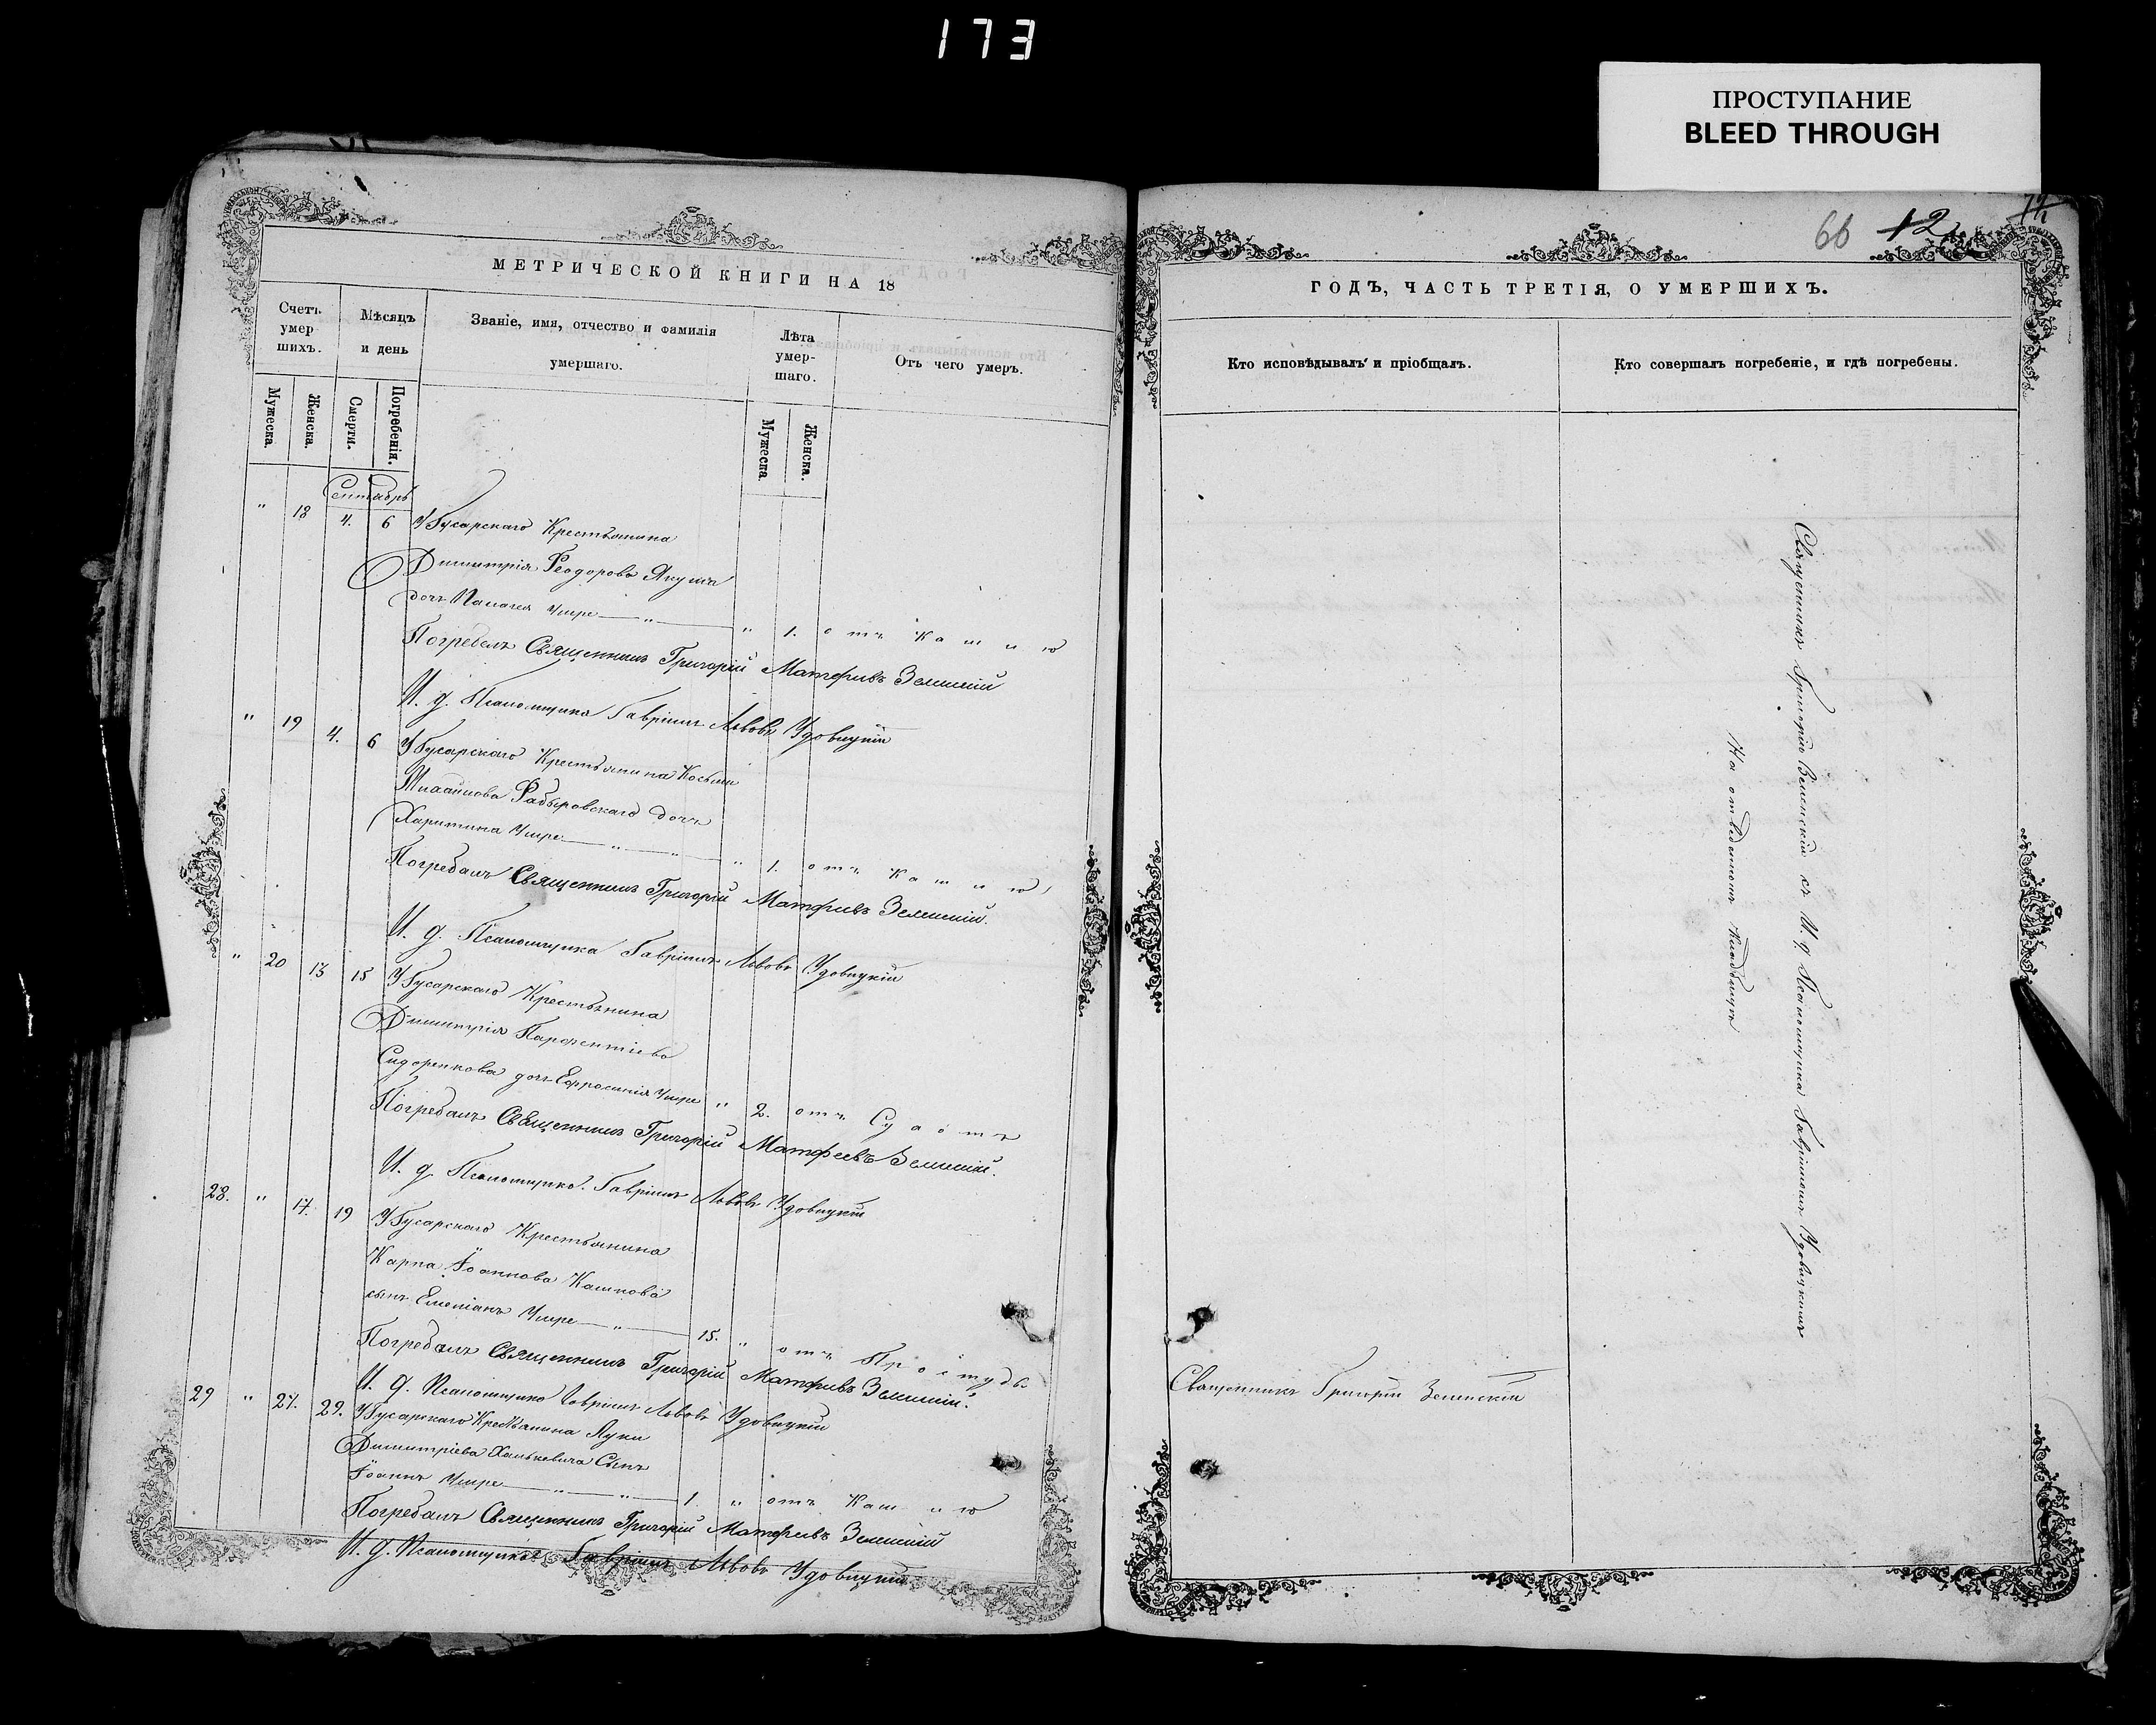 173
ПРОСТУПАНИЕ
BLEED THROUGH
МЕТРИЧЕСКОЙ КНИГИ НА 18
Счетъ умер шихъ.
Мѣсяцъ и день
Званіе, имя, отчество и фамилія умершаго.
Лѣта умер- шаго.
Отъ чего умеръ.
Мужеска.
Женска.
Смерти.
Погребенія.
Мужеска
Женска.
Сентябрь
" 18 4. 6 Крестьянина
Димитрія Феодорова Якуша
дочь Палагея Умре — " — " 1. отъ Кашлю
Погребалъ Священникъ Григорій Матфиевъ Зелинскій
И. д. Псаломщика Гавріилъ Львовъ Удовицкій
" 19 4. 6 Крестьянина Косьмы
дочь
Харитина Умре — " — " — " 1. отъ Кашлю
Погребалъ Священникъ Григорій Матфиевъ Зелинскій.
И. д. Псаломщика Гавріилъ Львовъ Удовицкій
" 20 13 15 Крестьянина
Димитрія Парфентіева
Сидоренкова дочь Ефросинія Умре " 2. отъ
Погребалъ Священникъ Григорій Матфеевъ Зелинскій.
И. д. Псаломщика Гавріилъ Львовъ Удовицкій
28. " 17. 19 Крестьянина
Карпа Іоаннова
сынъ Емеліанъ Умре — " — 15. " отъ Простуды
Погребалъ Священникъ Григорій Матфиевъ Зелинскій.
И. д. Псаломщика Гавріилъ Львовъ Удовицкій
29 " 27. 29. Крестьянина Луки
Димитріева Сынъ
Іоаннъ Умре — " — " — 1. " отъ Кашлю
Погребалъ Священникъ Григорій Матфиевъ Зелинскій
И. д. Псаломщика Гавріилъ Львовъ Удовицкій
66 12
ГОДЪ, ЧАСТЬ ТРЕТІЯ, О УМЕРШИХЪ.
Кто исповѣдывалъ и пріобщалъ.
Кто совершалъ погребеніе, и гдѣ погребены.
Священникъ Григорій Зеленскій съ И. д Псаломщика Гавріиломъ Удовицкимъ
На отведенномъ кладбищѣ
Священникъ Григорій Зеленскій